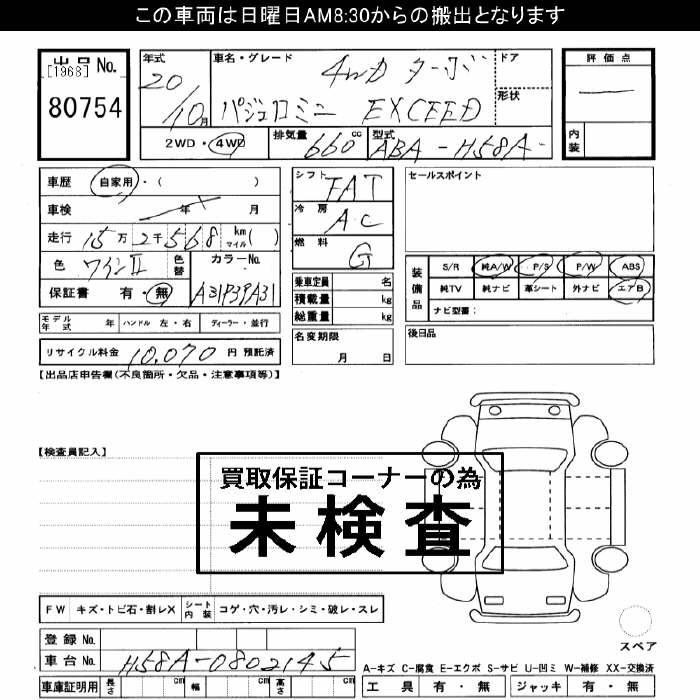 この車両は日曜日AM8:30からの搬出となります
出品No.
[1968]
80754
年式 20/10月
車名・グレード 4WD ターボ
パジェロミニ EXCEED
ドア
形状
評価点
内装
2WD・4WD
排気量 660 cc
型式 ABA-H58A-
車歴 自家用・( )
車検 年 月
走行 15万2千568 km マイル( )
色 ワインII 色替 カラーNo. A31P39A31
保証書 有・無
シフト FAT
冷房 AC
燃料 G
乗車定員 名
積載量 kg
総重量 kg
セールスポイント
装備品
S/R 純A/W P/S P/W ABS
純TV 純ナビ 革シート 外ナビ エアB
ナビ型番:
モデル年式 年 ハンドル 左・右 ディーラー・並行
リサイクル料金 10,070 円 預託済
名変期限 月 日
後日品
【出品店申告欄(不良箇所・欠品・注意事項等)】
【検査員記入】
買取保証コーナーの為
未検査
FW キズ・トビ石・割レX シート内装 コゲ・穴・汚レ・シミ・破レ・スレ
スペア
登録No.
車台No. H58A-0802145
A-キズ C-腐食 E-エクボ S-サビ U-凹ミ W-補修 XX-交換済
車庫証明用 長さ cm 幅 cm 高さ cm
工具 有・無 ジャッキ 有・無